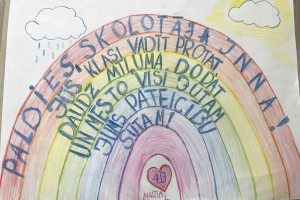 PALDIES, SKOLOTĀJA INNA!
JŪS KLASI VADĪT PROTAT,
DAUDZ MĪĻUMA DODAT
UN MĒS TO VISI JŪTAM
JUMS PATEICĪBU
SŪTAM!
4.B